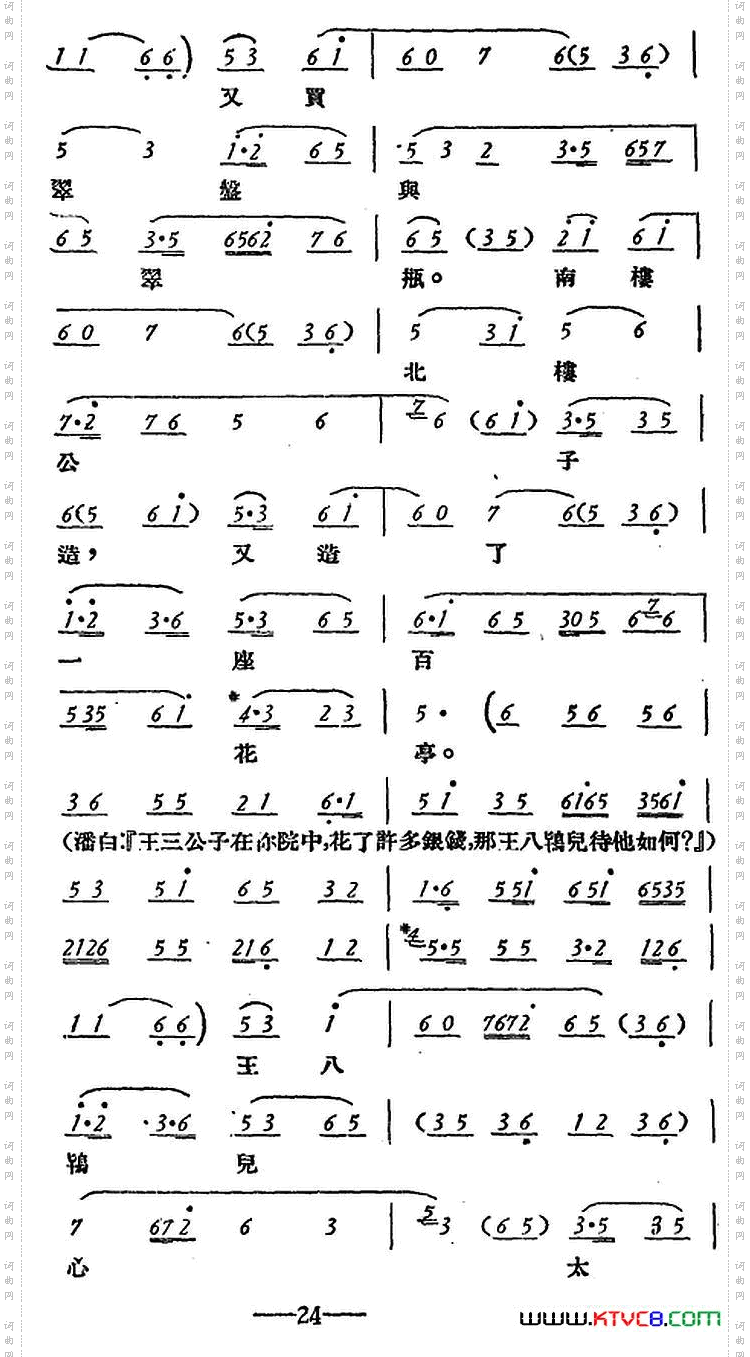 1 1 6 6) 5 3 6 i | 6 0 7 6(5 3 6 |
又 買
5 3 i·2 6 5 | 5 3 2 3·5 6 5 7 |
翠 盤 與
6 5 3·5 6 5 6 2 7 6 | 6 5 (3 5) 2 i 6 i |
翠 瓶。 南 樓
6 0 7 6(5 3 6) | 5 3 i 5 6
北 樓
7·2 7 6 5 6 | 7 6 (6 i) 3·5 3 5 |
公 子
6(5 6 i) 5·3 6 i | 6 0 7 6(5 3 6) |
造, 又 造 了
i·2 3·6 5·3 6 5 | 6·i 6 5 3 0 5 6 7 6 |
一 座 百
5 3 5 6 i #4·3 2 3 | 5· (6 5 6 5 6 |
花 亭。
3 6 5 5 2 1 6·1 | 5 i 3 5 6 i 6 5 3 5 6 i |
(潘白:『王三公子在你院中,花了許多銀錢,那王八鴇兒待他如何?』)
5 3 5 i 6 5 3 2 | 1·6 5 5 i 6 5 i 6 5 3 5 |
2 1 2 6 5 5 2 1 6 1 2 | #4 5·5 5 5 3·2 1 2 6 |
1 1 6 6) 5 3 i | 6 0 7 6 7 2 6 5 (3 6) |
王 八
i·2 3·6 5 3 6 5 | (3 5 3 6 1 2 3 6) |
鴇 兒
7 6 7 2 6 3 | 5 3 (6 5) 3·5 3 5 |
心 太
—24—
www.KTVC8.com
词曲网